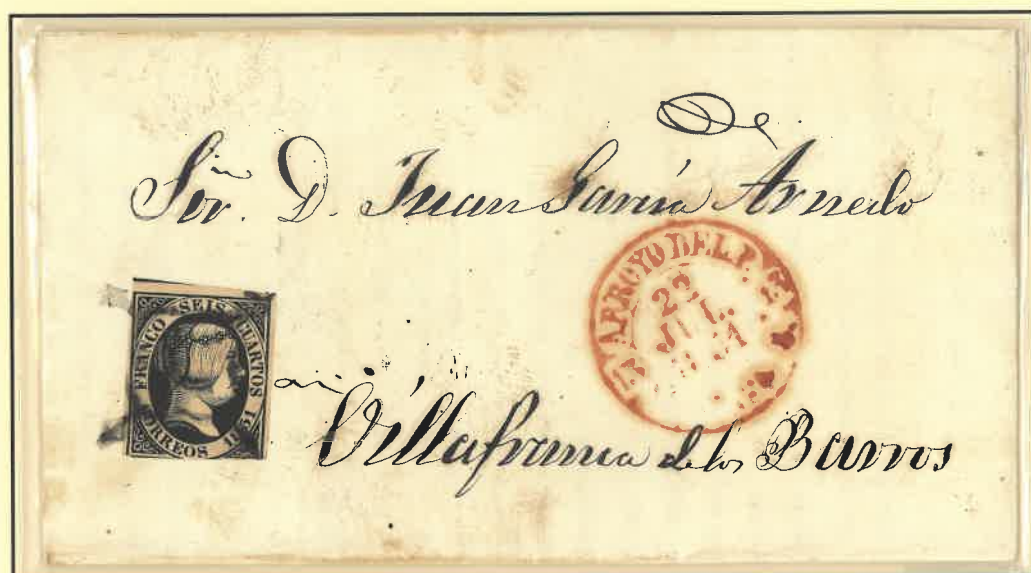 De
Sor. D. Juan García Arnedo
FRANCO SEIS CUARTOS
CORREOS 1851
ARROYO DEL P.
22
JUL.
1851
Villafranca de los Barros